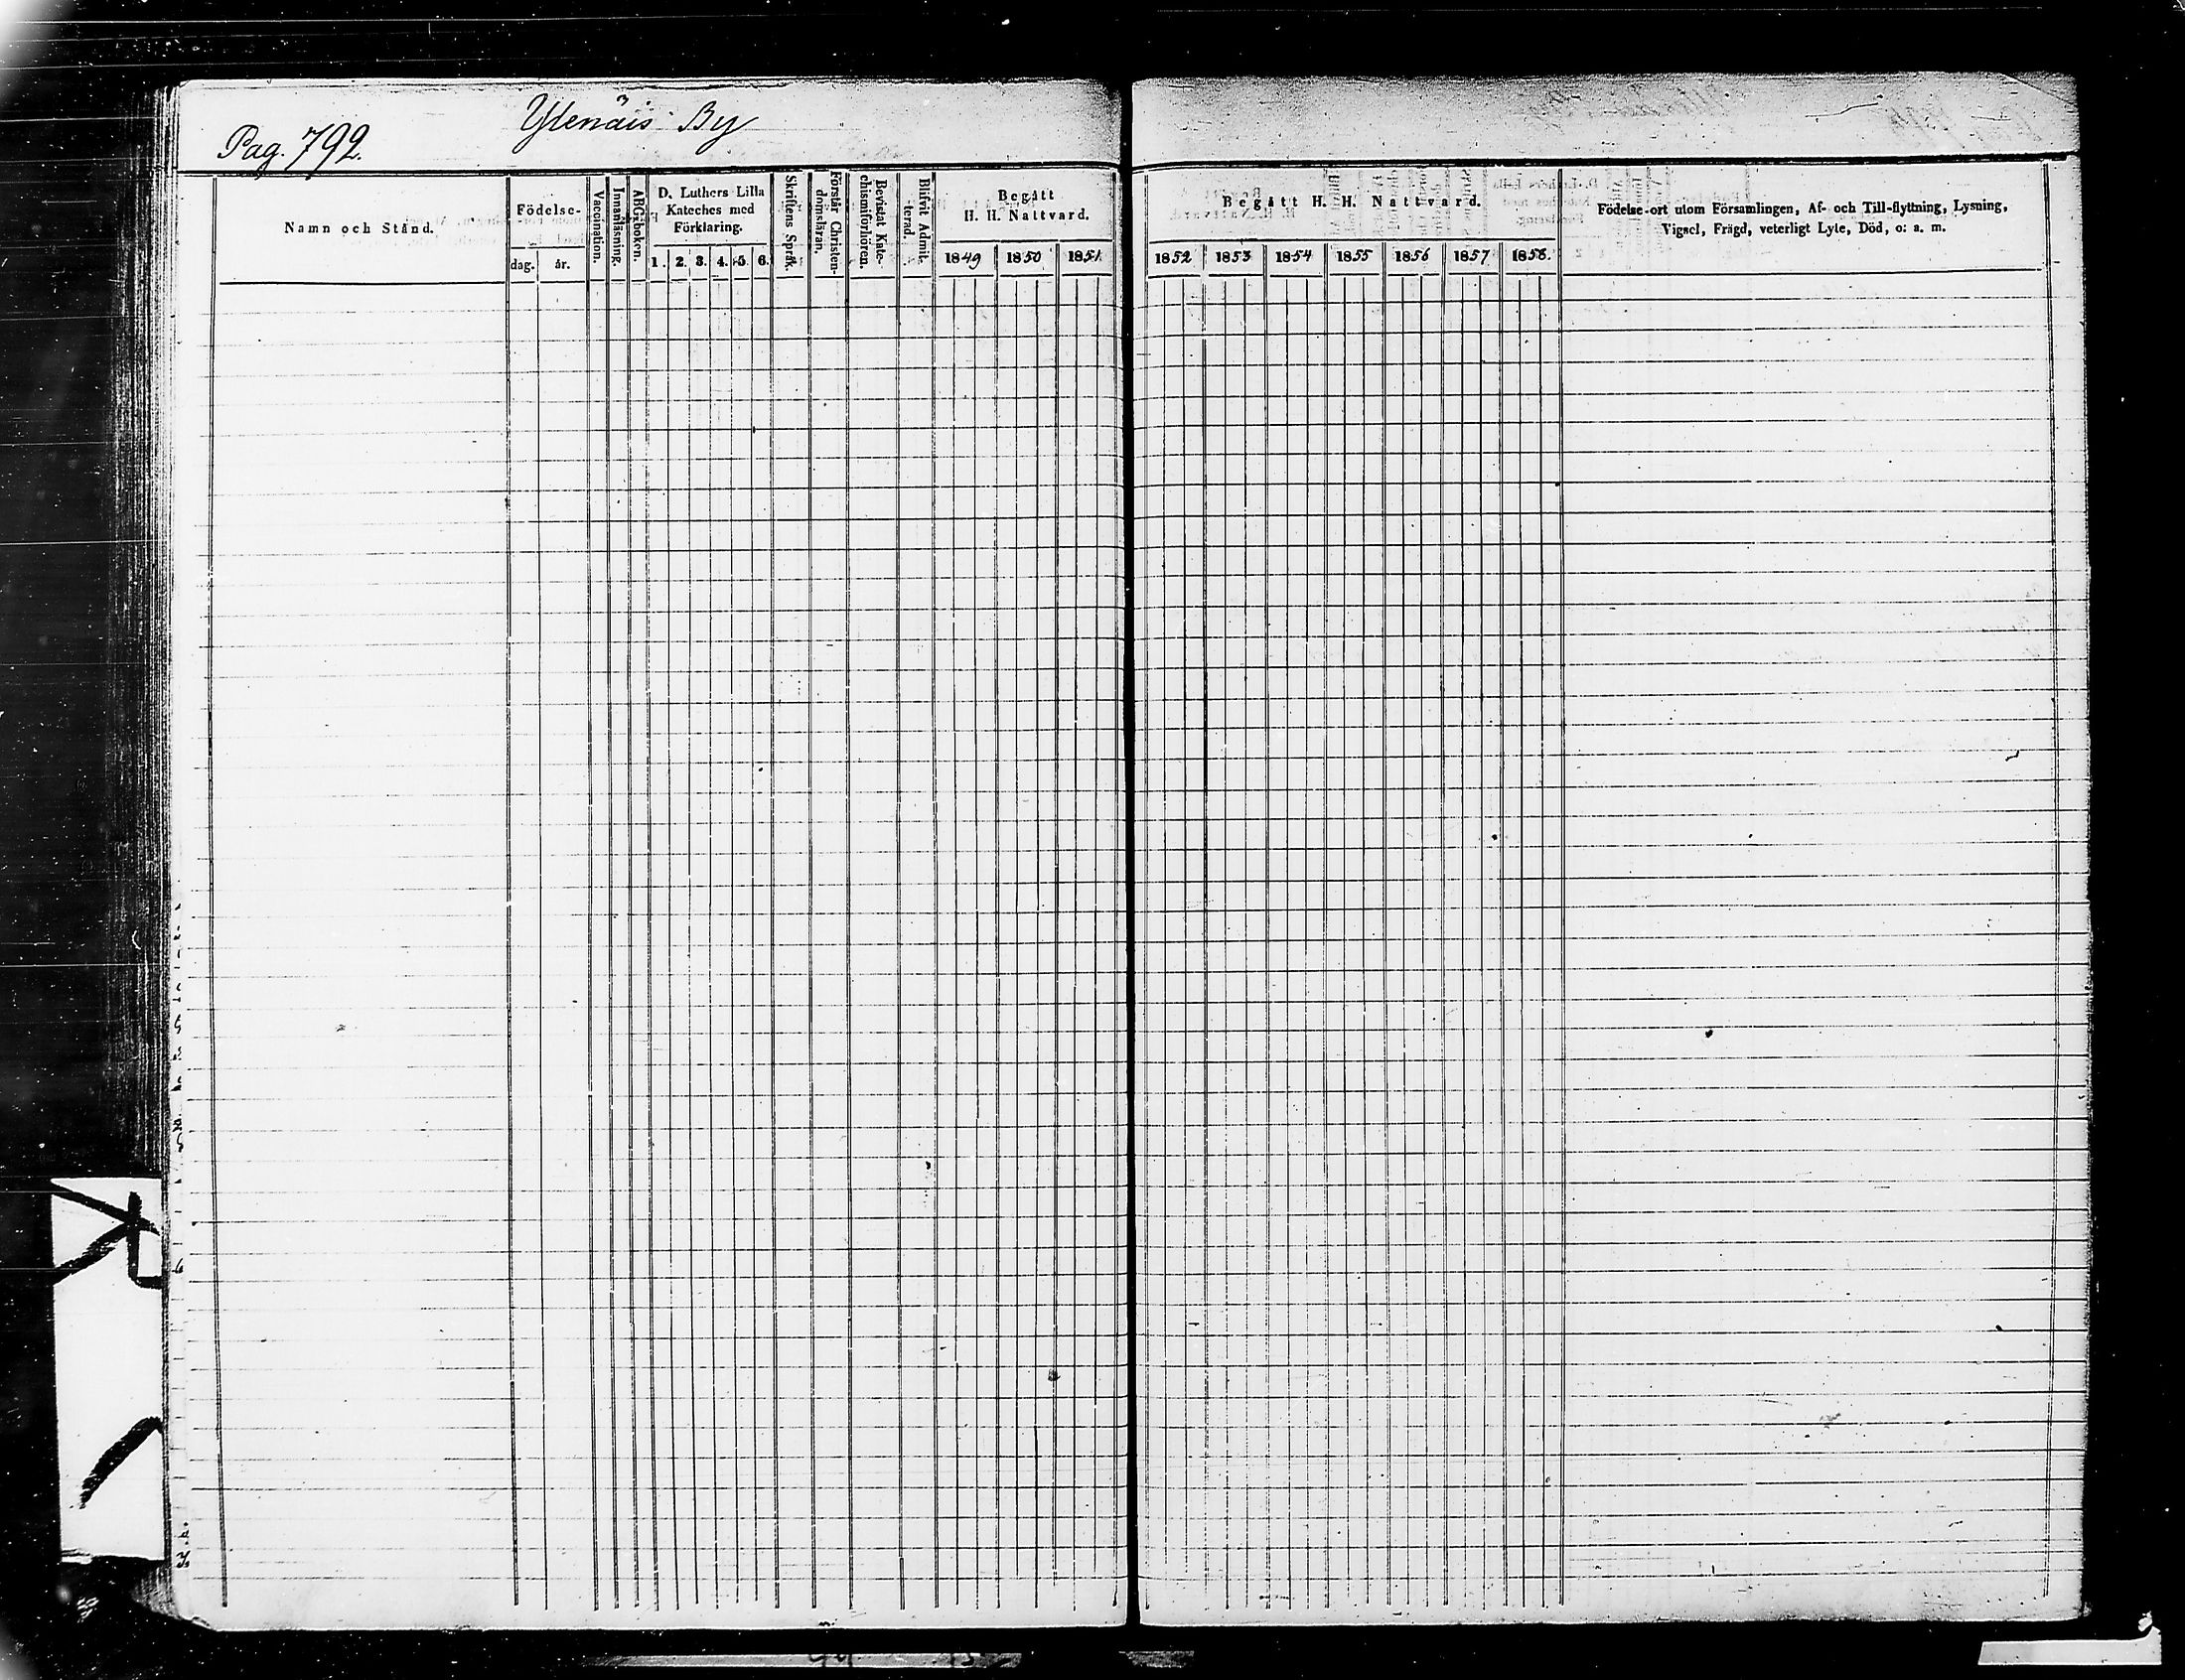 Pag. 792.
Ylenäis By
Namn och Stånd.
Födelse-
dag. år.
Vaccination.
Innanläsning.
ABC-boken.
D. Luthers Lilla
Kateches med
Förklaring.
1. 2. 3. 4. 5. 6.
Skriftens Språk.
Förstår Christen-
domsläran.
Bevistat Kate-
chismiförhören.
Blifvit Admit-
terad.
Begått
H. H. Nattvard.
1849 1850 1851
Begått H. H. Nattvard.
1852 1853 1854 1855 1856 1857 1858.
Födelse-ort utom Församlingen, Af- och Till-flyttning, Lysning,
Vigsel, Frägd, veterligt Lyte, Död, o: a. m.